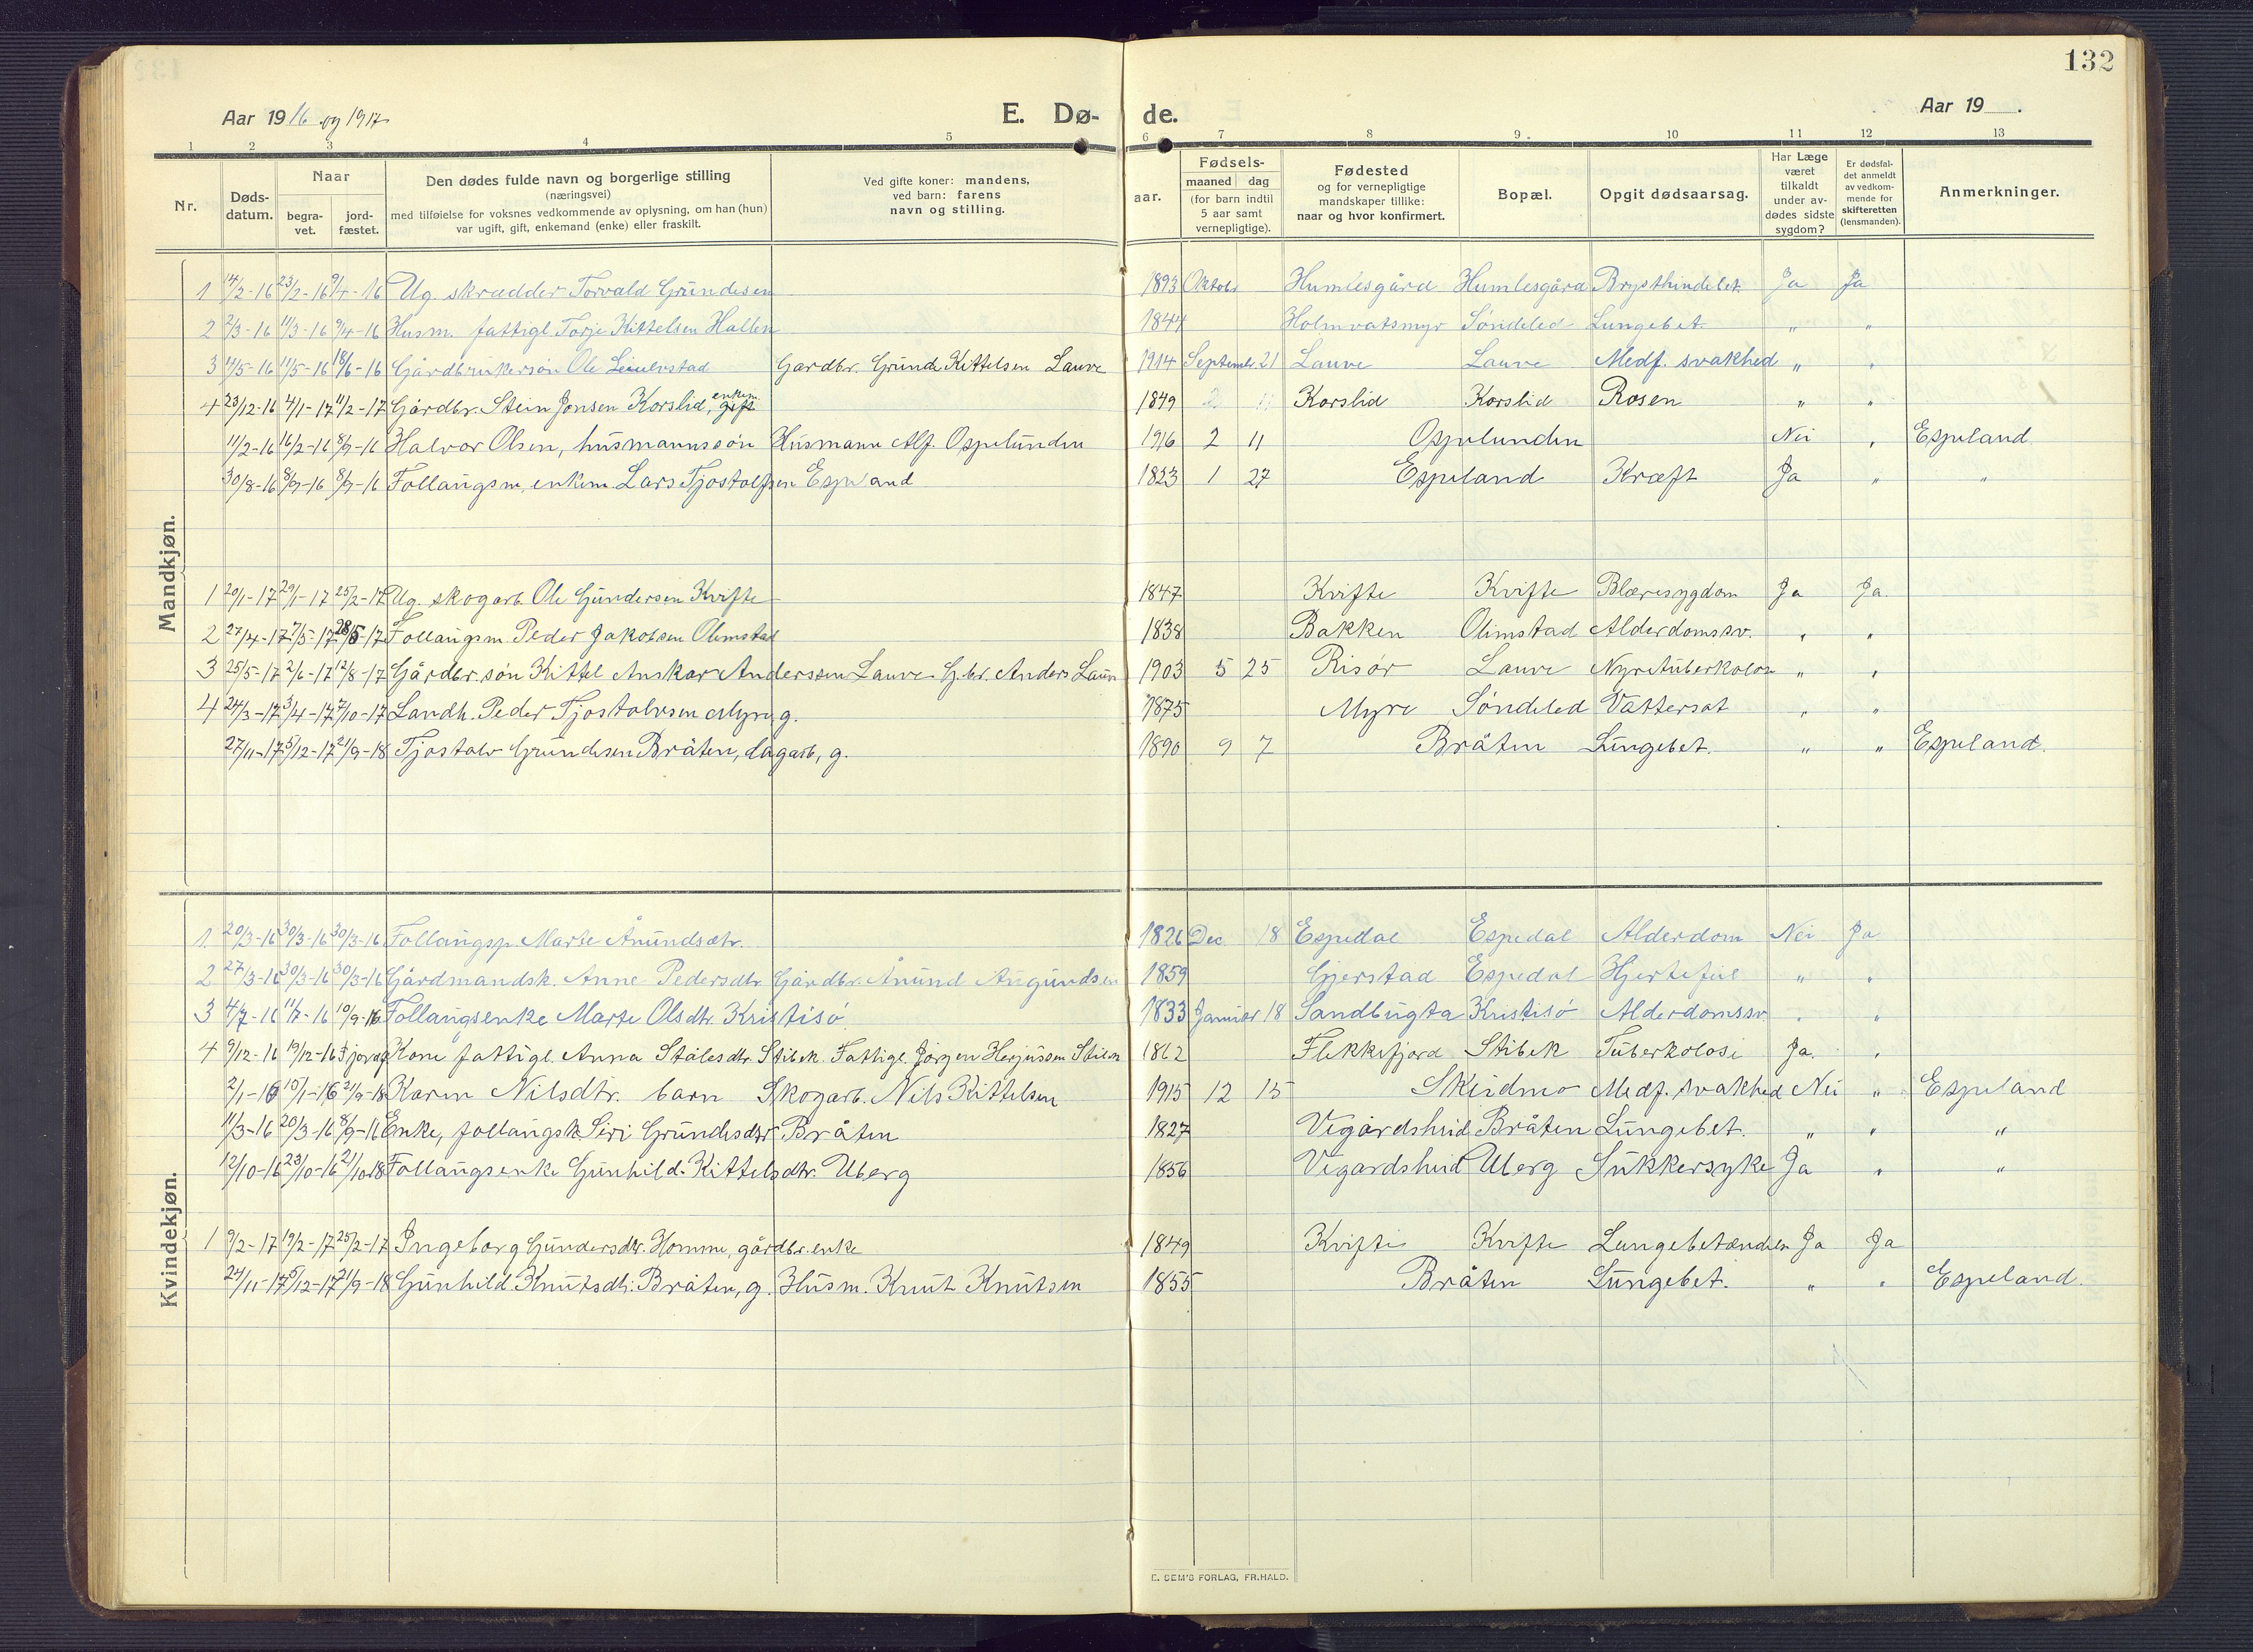 132
Aar 1916 og 1917
E. Dø-
de.
Aar 19 .
1 2 3 4 5 6 7 8 9 10 11 12 13
Nr.
Døds-
datum.
Naar
begra-
vet.
jord-
fæstet.
Den dødes fulde navn og borgerlige stilling
(næringsvei)
med tilføielse for voksnes vedkommende av oplysning, om han (hun)
var ugift, gift, enkemand (enke) eller fraskilt.
Ved gifte koner: mandens,
ved barn: farens
navn og stilling.
aar.
Fødsels-
maaned dag
(for barn indtil
5 aar samt
vernepligtige).
Fødested
og for vernepligtige
mandskaper tillike:
naar og hvor konfirmert.
Bopæl.
Opgit dødsaarsag.
Har Læge
været
tilkaldt
under av-
dødes sidste
sygdom?
Er dødsfal-
det anmeldt
av vedkom-
mende for
skifteretten
(lensmanden).
Anmerkninger.
Mandkjøn.
1 14/2-16 23/2-16 9/4-16 Ug. skrædder Torvald Grundesen 1893 Oktob. Humlesgård Humlesgård Brysthindebet. Ja Ja
2 2/3-16 11/3-16 9/4-16 Husm. fattigl. Torje Kittelsen Hallen 1844 Holmvatsmyr Søndeled Lungebet. " "
3 4/5-16 11/5-16 18/6-16 Gårdbrukersøn Ole Gardbr. Grunde Kittelsen Lauve 1914 Septemb. 21 Lauve Lauve Medf. svakhed " "
4 23/12-16 4/1-17 11/2-17 Gårdbr. Stein Jonsen Korslid, enkem. gift 1849 Korslid Korslid Rosen " "
11/2-16 16/2-16 8/9-16 Halvor Olsen, husmannssøn Husmann Alf. Ospelunden 1916 2 11 Ospelunden Nei " Espeland
30/8-16 8/9-16 8/9-16 Follaugsm, enkem. Lars Tjostolfsen Espeland 1823 1 27 Espeland Kræft Ja " "
1 20/1-17 29/1-17 25/2-17 Ug. skogarb. Ole Gundersen Kvifte 1847 Kvifte Kvifte Blæresygdom Ja Ja
2 27/4-17 7/5-17 28/5-17 Follaugsm. Peder Jakobsen Olimstad 1838 Bakken Olimstad Alderdomssv. " "
3 25/5-17 2/6-17 12/8-17 Gårdbr. søn Kittel Anskar Anderssen Lauve G.br. Anders Lauve 1903 5 25 Risør Lauve Nyretuberkolose " "
4 24/3-17 3/4-17 7/10-17 Landh. Peder Tjostolvsen Myre, g. 1875 Myre Søndeled Vattersot " "
27/11-17 5/12-17 21/9-18 Tjostolv Grundesen Bråten, dagarb, g. 1890 9 7 Bråten Lungebet. " " Espeland.
Kvindekjøn.
1 20/3-16 30/3-16 30/3-16 Follaugsp. Marte Ånundsdtr. 1826 Dec. 18 Espedal Espedal Alderdom Nei Ja
2 27/3-16 30/3-16 30/3-16 Gårdmandsk. Anne Pedersdtr. Gårdbr. Ånund Augundsen 1859 Gjerstad Espedal Hjertefeil " "
3 4/7-16 11/7-16 10/9-16 Follaugsenke Marte Olsdtr. Kristisø 1833 Januar 18 Sandbugta Kristisø Alderdomssv. " "
4 9/12-16 19/12-16 Kone fattigl. Anna Stålesdtr. Stibek. Fattigl. Jørgen Herjussen Stibek 1862 Flekkefjord Stibek Tuberkolose Ja. "
2/1-16 10/1-16 21/9-18 Karen Nilsdtr. barn Skogarb. Nils Kittelsen 1915 12 15 Skeidmo Medf. svakhed Nei " Espeland
11/3-16 20/3-16 8/9-16 Enke, follaugsk. Siri Grundesdtr Bråten 1827 Vegårdsheid Bråten Lungebet. " " "
12/10-16 23/10-16 21/10-18 Follaugsenke Gunhild Kittelsdtr. Uberg 1856 Vegardsheid Uberg Sukkersyke Ja " "
1 9/2-17 19/2-17 25/2-17 Ingeborg Gundersdtr. Homme, gårdbr. enke 1849 Kvifte Kvifte Lungebetændelse Ja Ja
24/11-17 5/12-17 21/9-18 Gunhild Knutsdtr. Bråten, g. Husm. Knut Knutsen 1855 Bråten Lungebet. " " Espeland.
E. SEM'S FORLAG, FR.HALD.